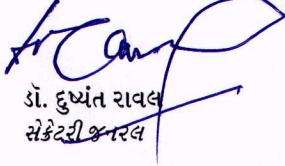 ડૉ. દુષ્યંત રાવલ
સેક્રેટરી જનરલ